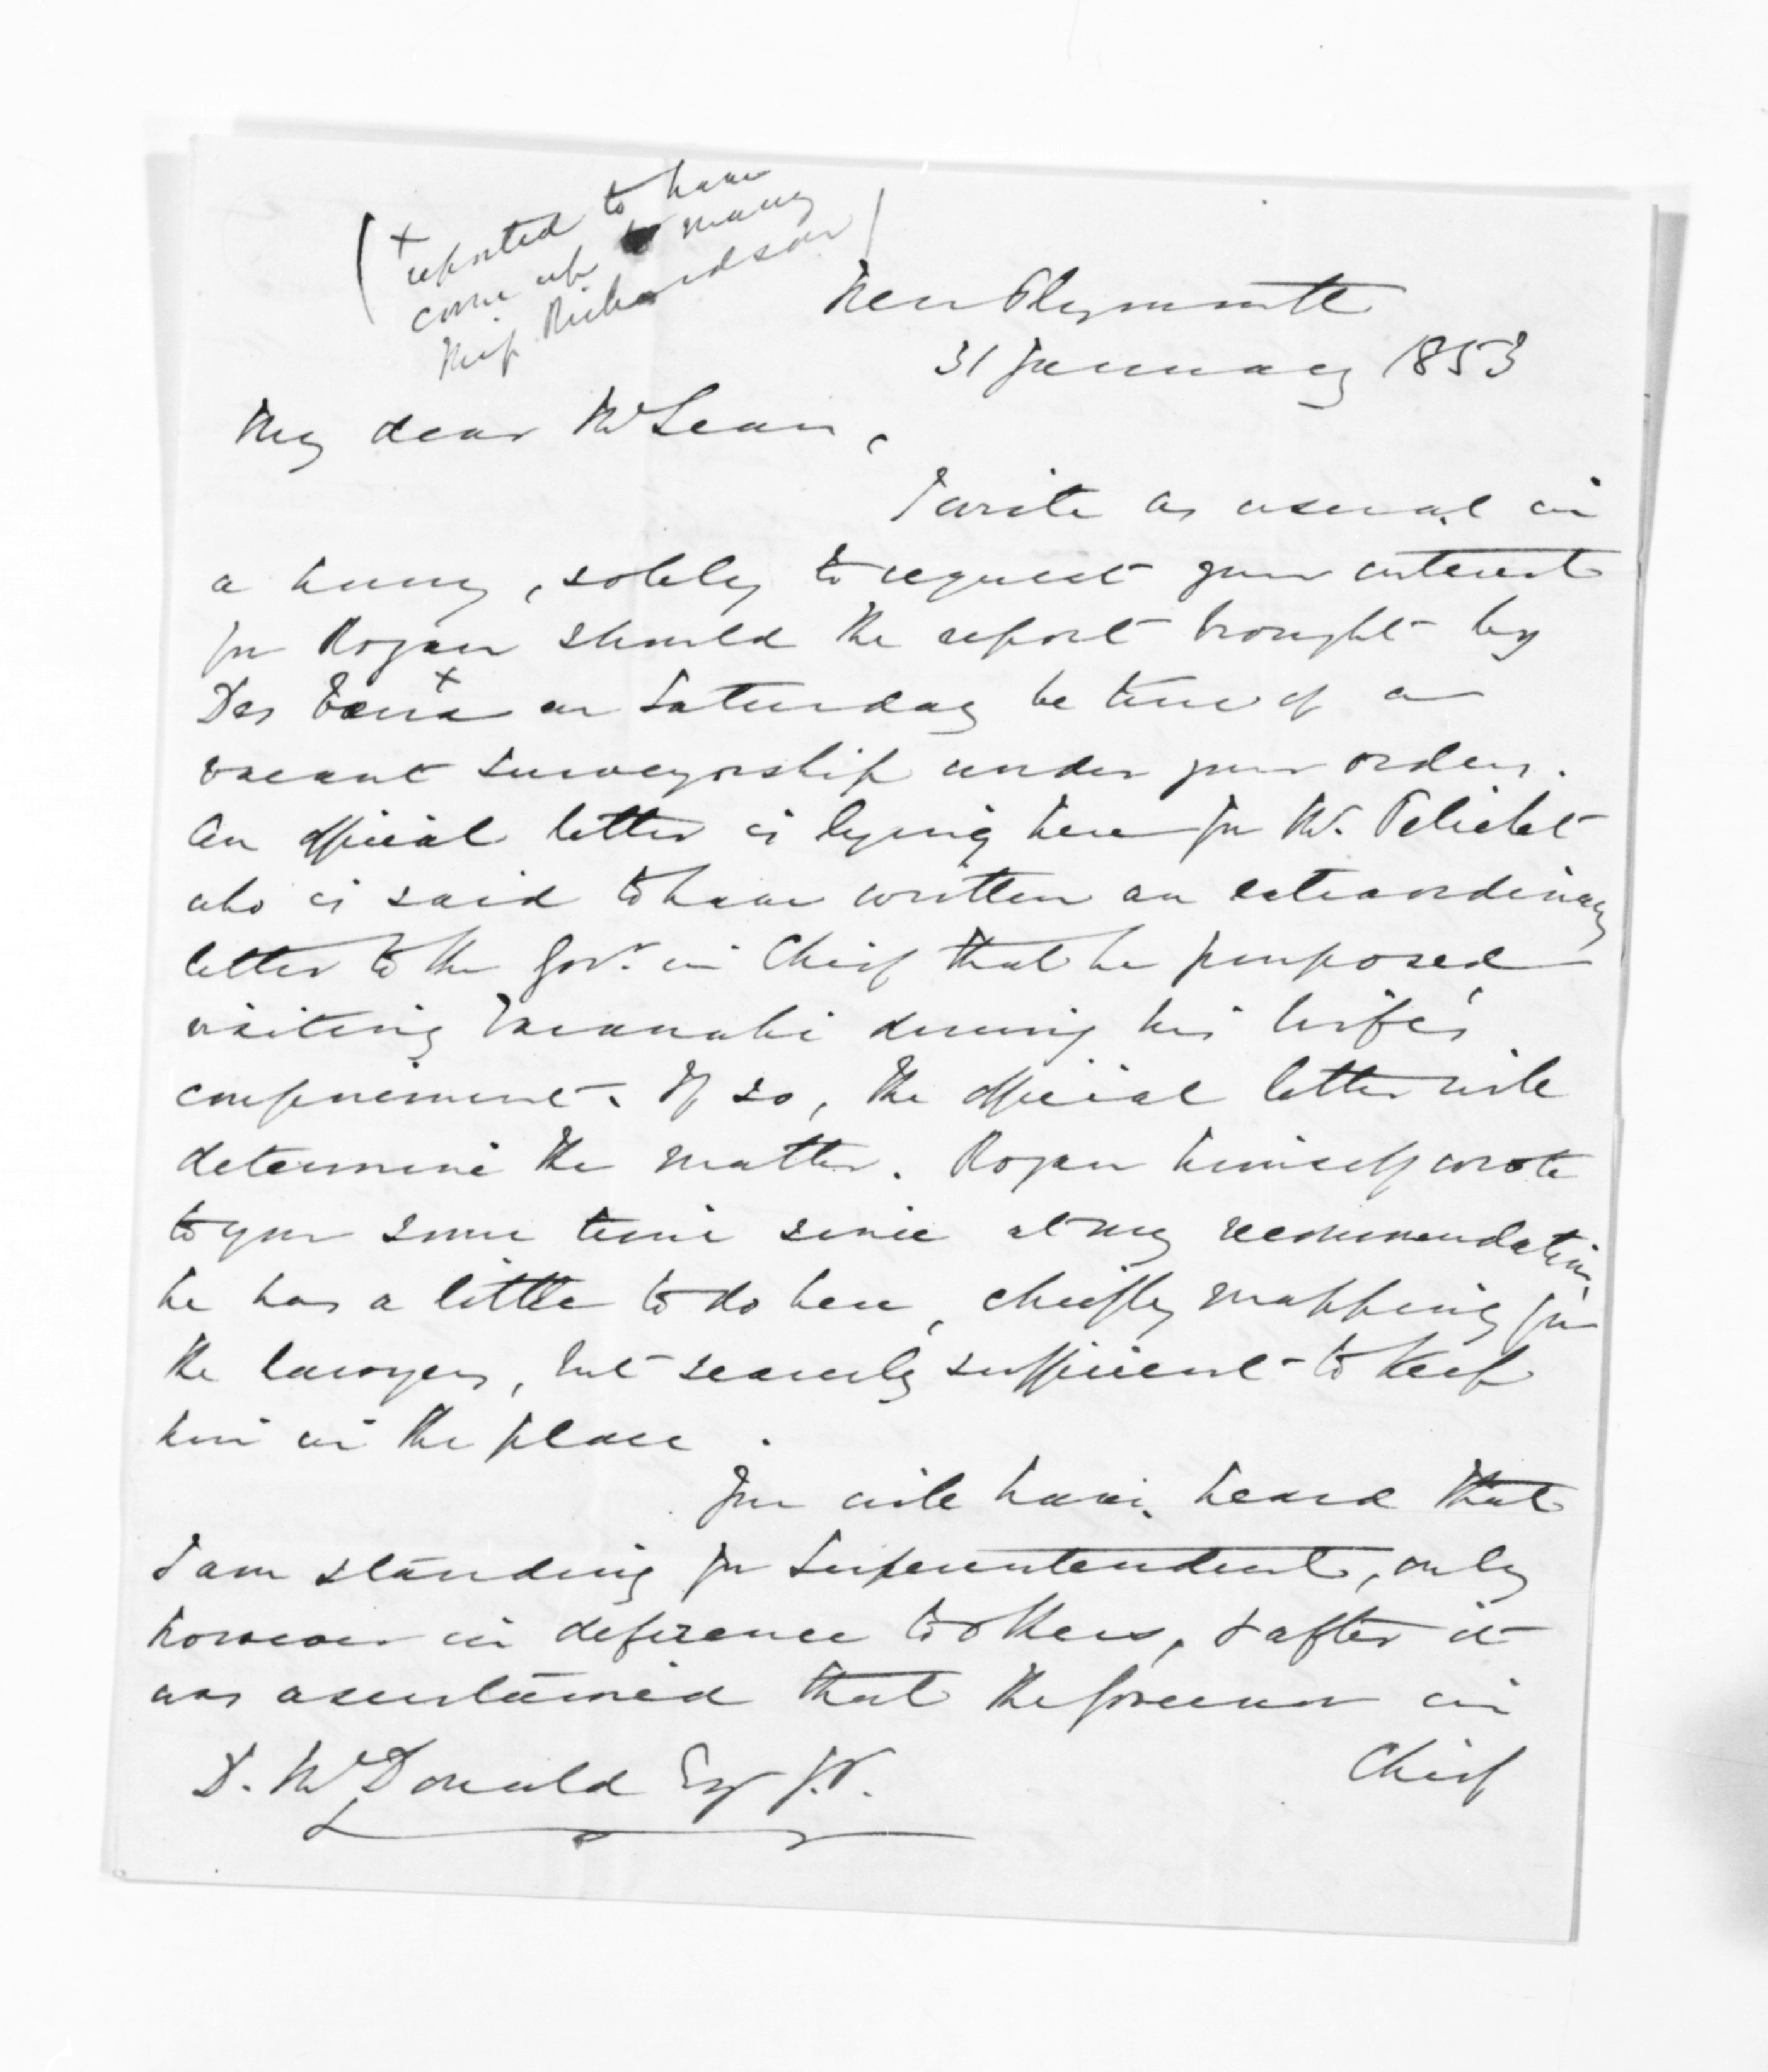 (+ reported to have
come up to marry
Miss Richardson)
New Plymouth
31 January 1853
My dear McLean,
I write as usual in
a hurry, solely to request your interest
for Rogan should the report brought by
Des Voeux + on Saturday be true of a
vacant surveyorship under your orders.
An official letter is lying here for Mr. Pelichet
who is said to have written an extraordinary
letter to the Govr. in Chief that he purposed
visiting Taranaki during his wife's
confinement. If so, the official letter will
determine the matter. Rogan himself wrote
to you some time since at my recommendation
he has a little to do here, chiefly mapping for
the lawyers, but scarcely sufficient to keep
him in the place.
You will have heard that
I am standing for Superintendent, only
however in deference to others, & after it
was ascertained that the Governor in
Chief
D. McDonald Esq J.P.